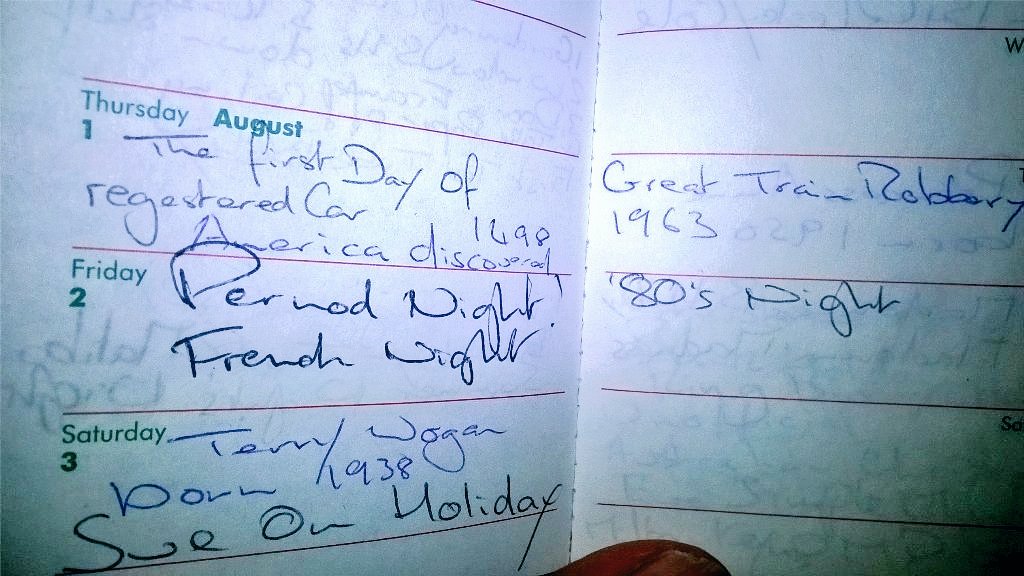 Thursday August
1 The first Day of
regestered Car
America discovered 1498
Friday
2 Pernod Night!
French Night
Saturday
3 Terry Wogan
born 1938
Sue On Holiday
W
Great Train Robbery
1963
'80's Night
Sa